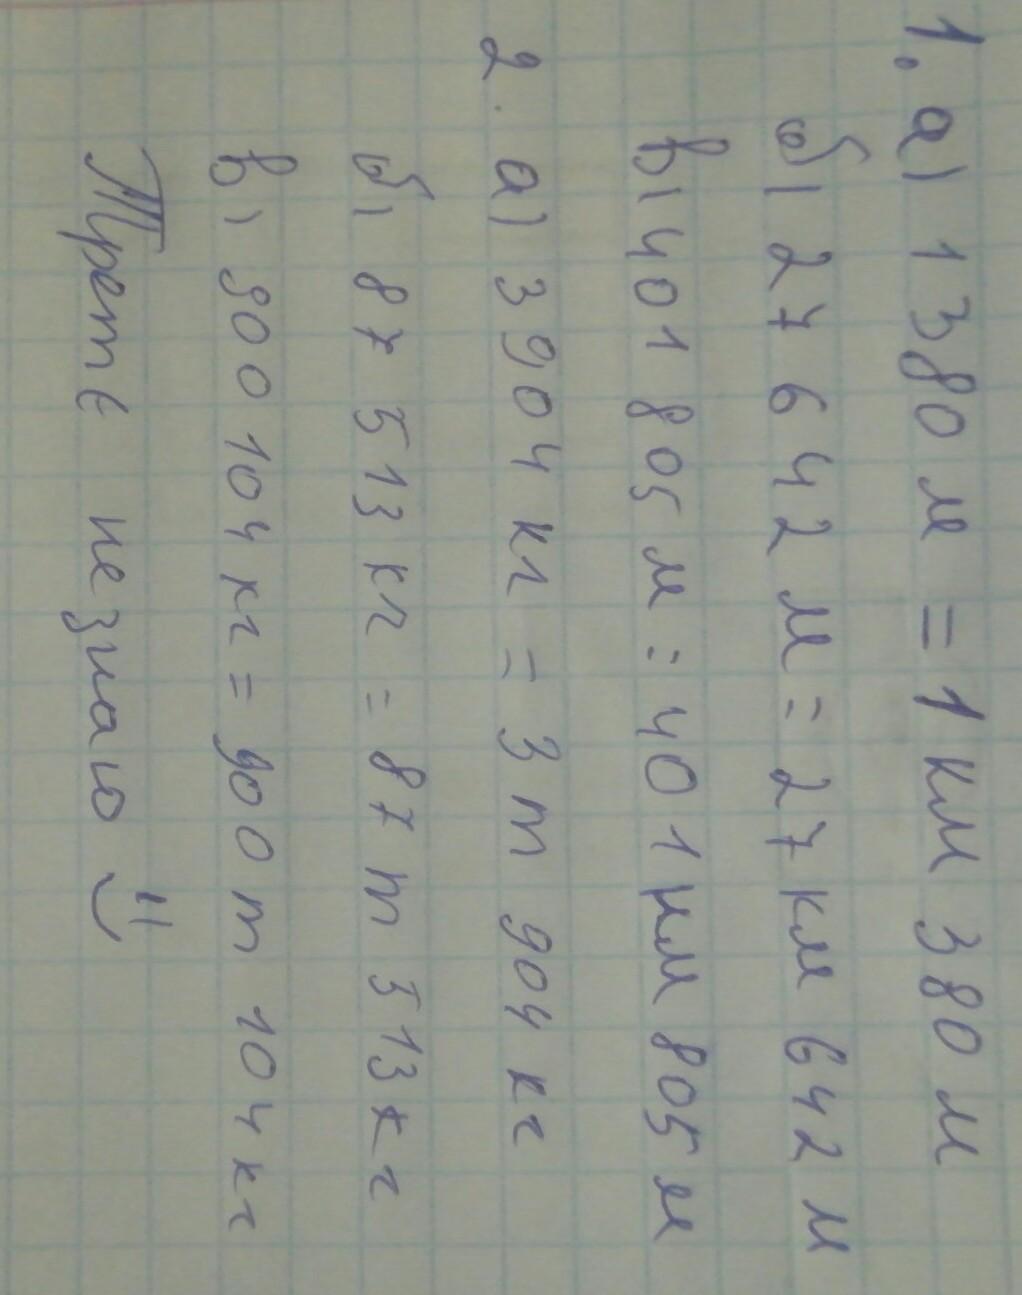 1. а) 1380 м = 1 км 380 м
б) 27 642 м = 27 км 642 м
в) 401 805 м = 401 км 805 м
2. а) 3904 кг = 3 т 904 кг
б) 87 513 кг = 87 т 513 кг
в) 900 104 кг = 900 т 104 кг
Трете незнаю :)